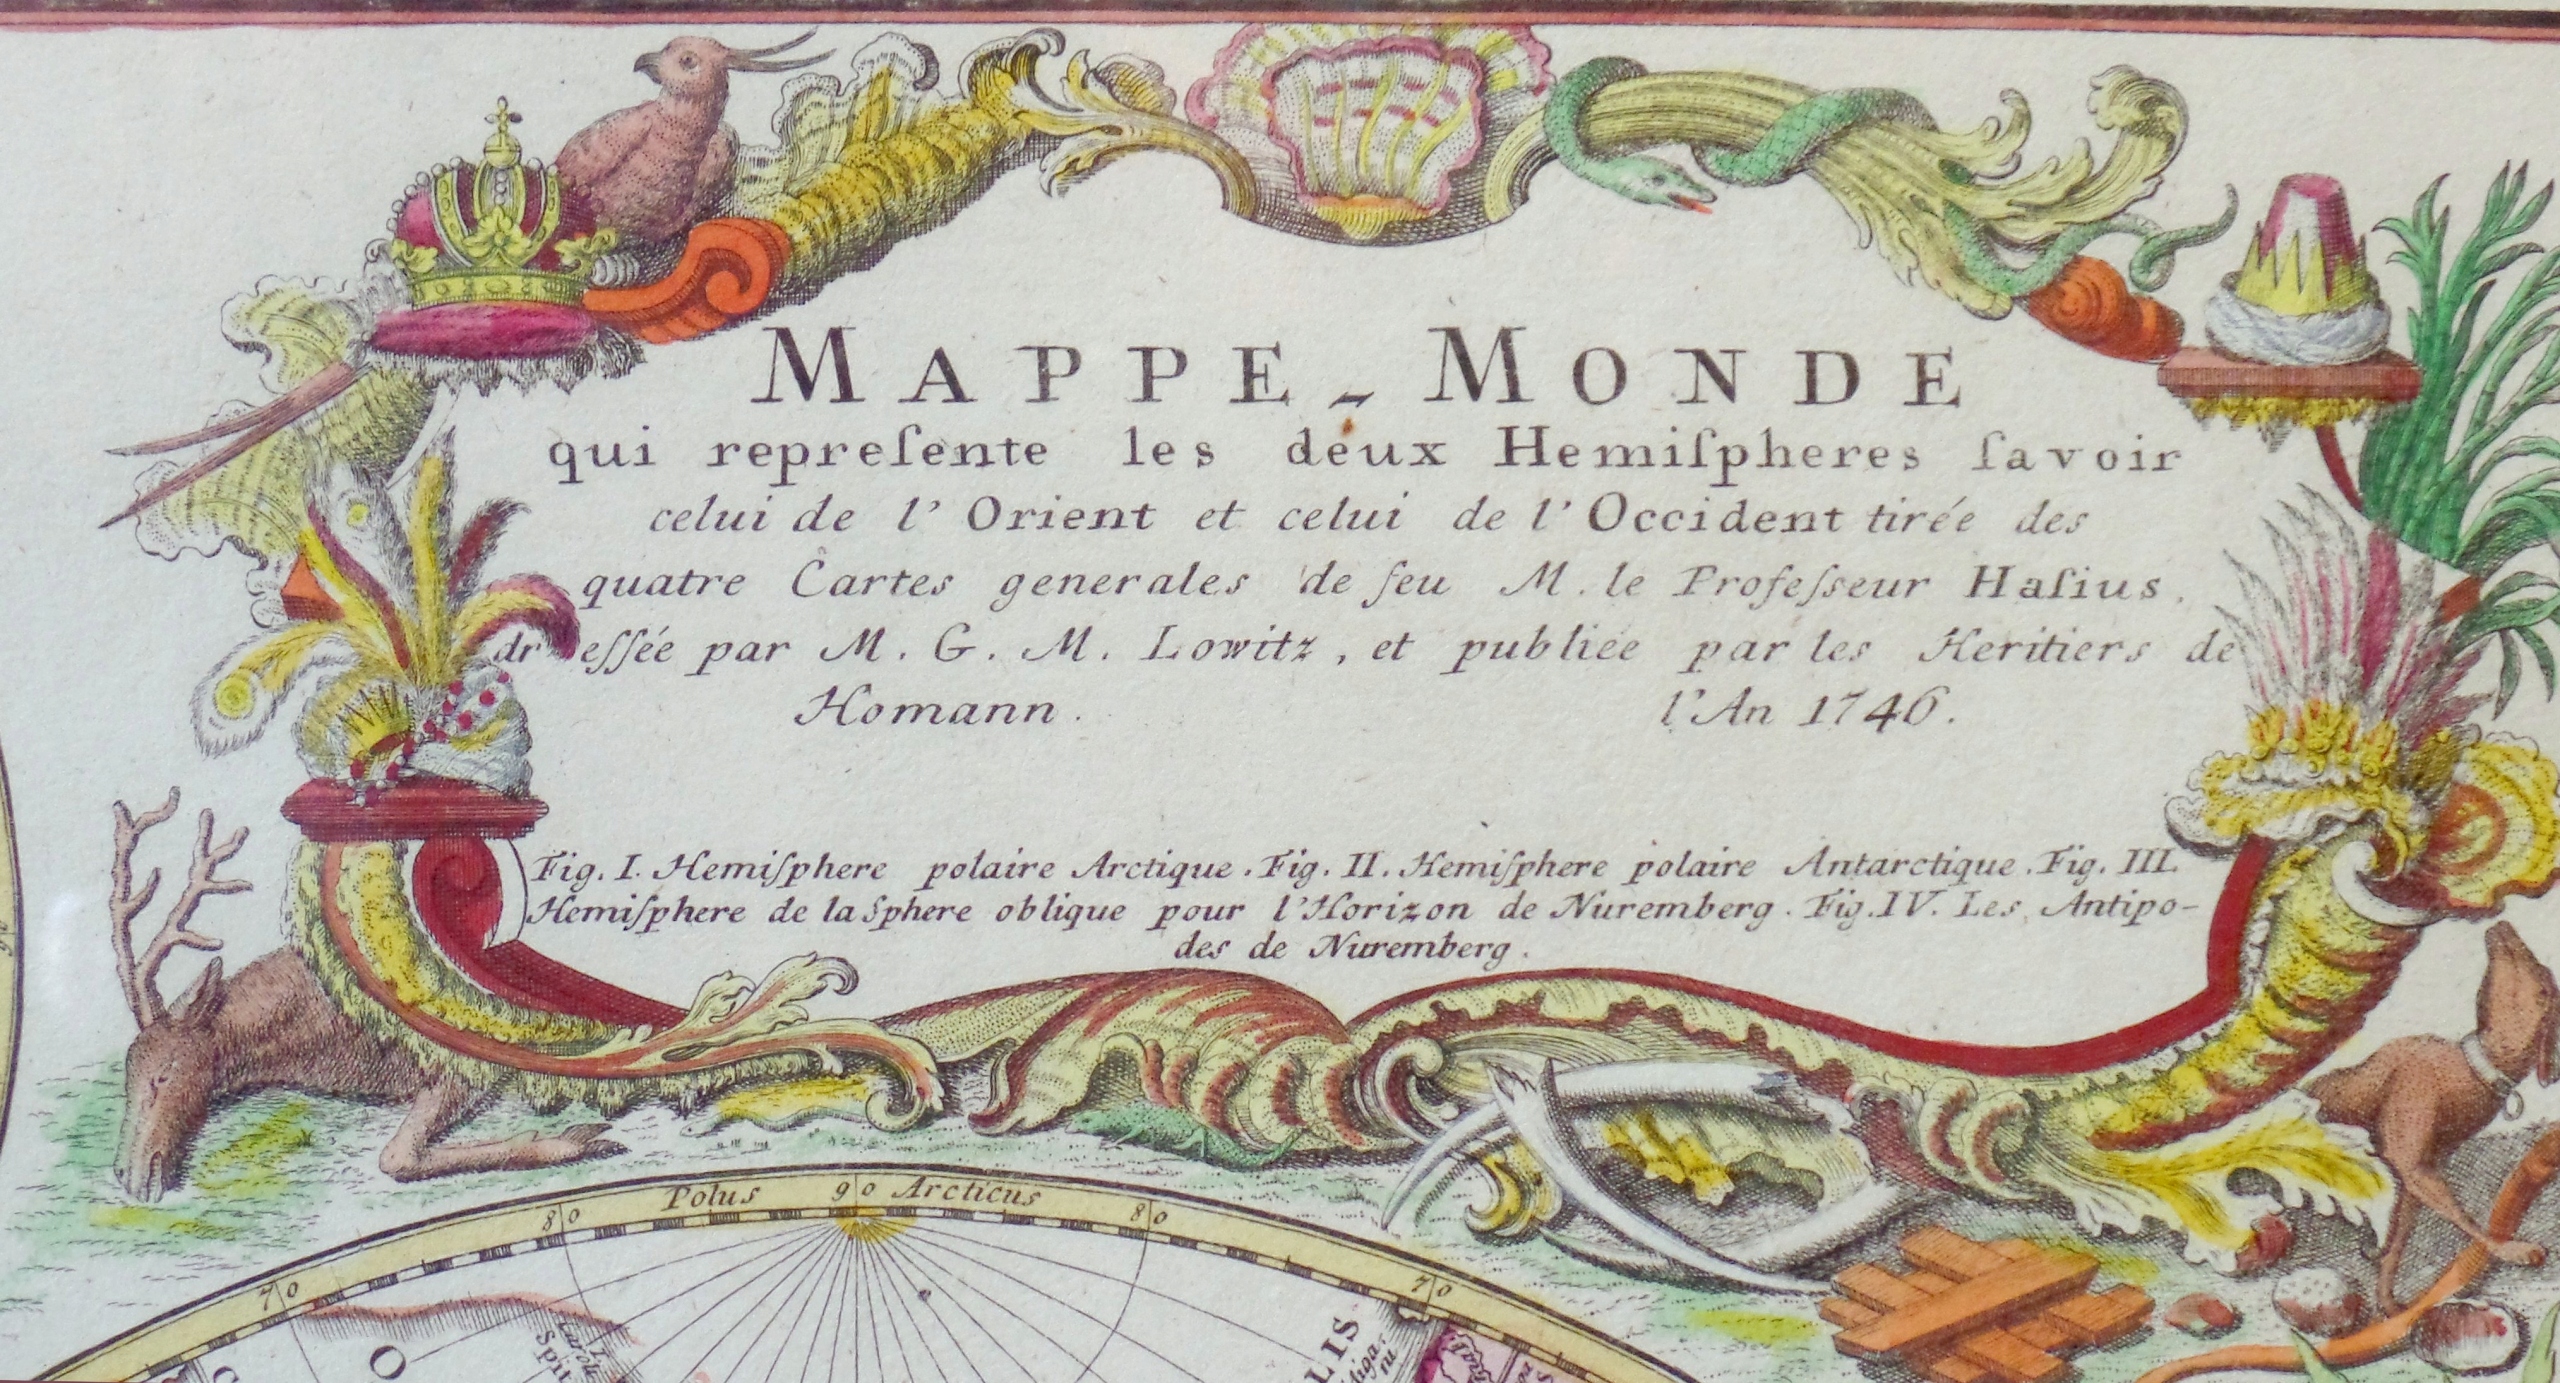 MAPPE-MONDE
qui repreſente les deux Hemiſpheres ſavoir
celui de l' Orient et celui de l' Occident tirée des
quatre Cartes generales de feu M. le Profeſseur Haſius.
dreſſée par M. G. M. Lowitz, et publiée par les Heritiers de
Homann. l'An 1746.
Fig. I. Hemiſphere polaire Arctique. Fig. II. Hemiſphere polaire Antarctique. Fig. III.
Hemiſphere de la Sphere oblique pour l'Horizon de Nuremberg. Fig. IV. Les Antipo-
des de Nuremberg.
Polus 90 Arcticus
80
80
70
70